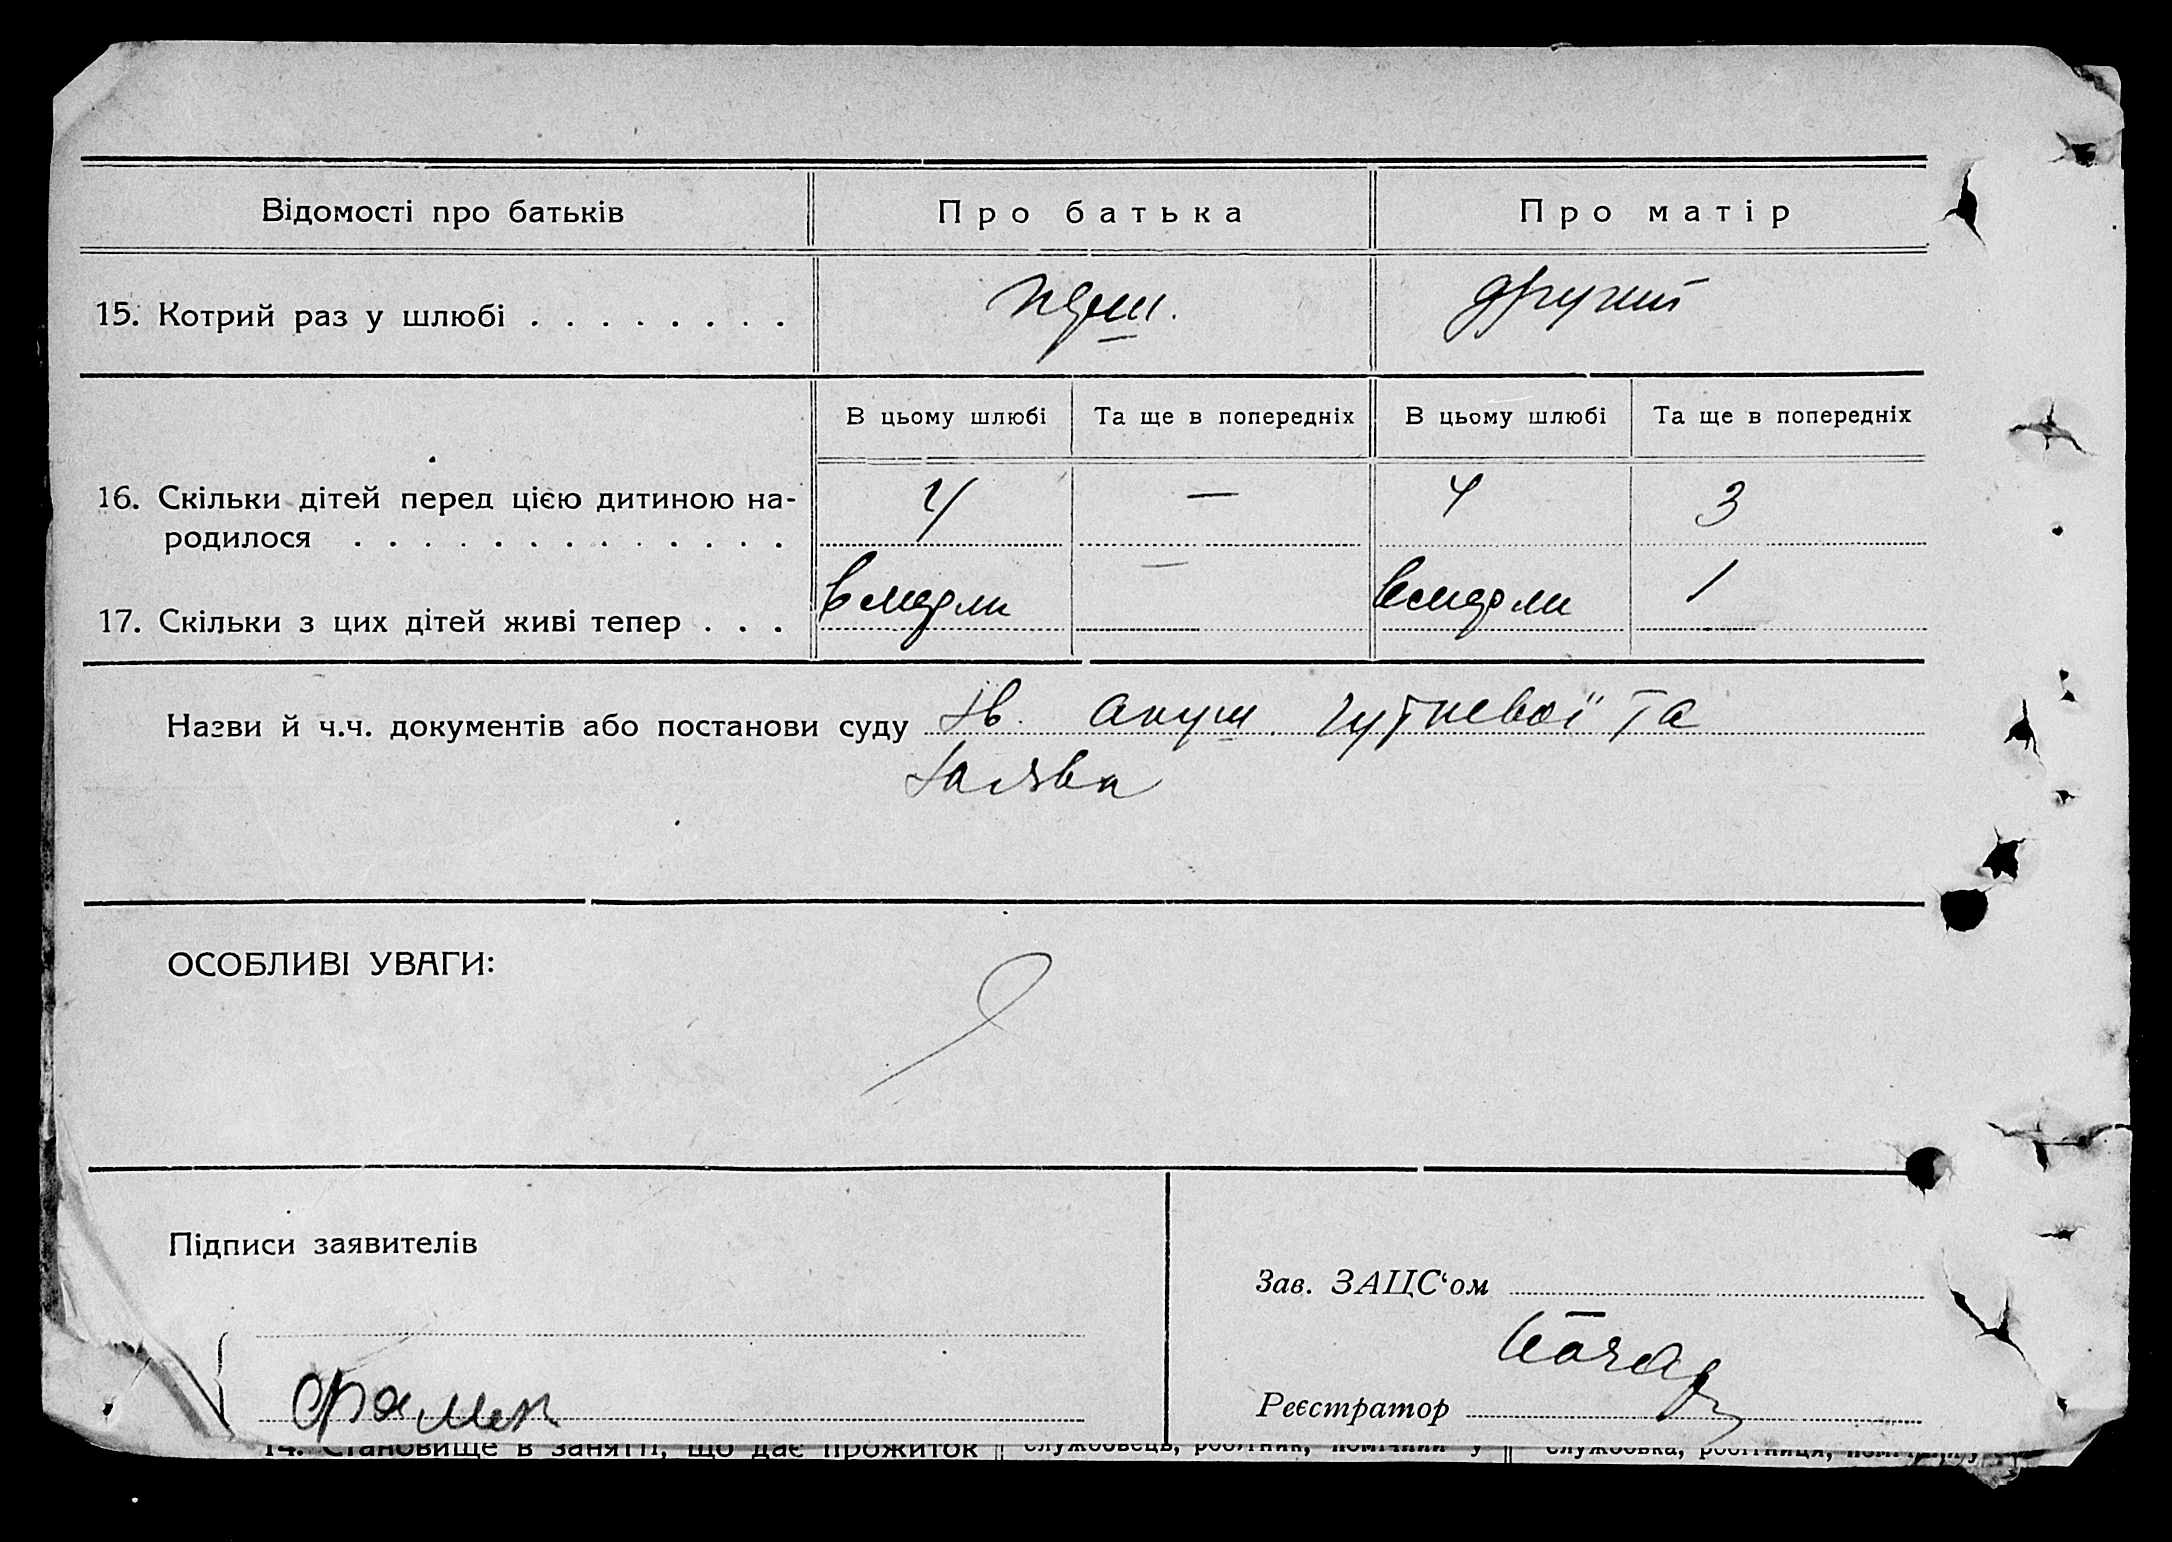 Відомості про батьків Про батька Про матір
15. Котрий раз у шлюбі . . . . . . . . перш. другий
В цьому шлюбі Та ще в попередніх В цьому шлюбі Та ще в попередніх
16. Скільки дітей перед цією дитиною на-
родилося . . . . . . . . . . . . . 4 — 4 3
17. Скільки з цих дітей живі тепер . . . вмерли — вмерли 1
Назви й ч.ч. документів або постанови суду акуш та
Заява
ОСОБЛИВІ УВАГИ:
Підписи заявителів
Зав. ЗАЦС‘ом
Реєстратор
14. Становище в занятті, що дає прожиток службовець, робітник, помічний у службовка, робітниця,